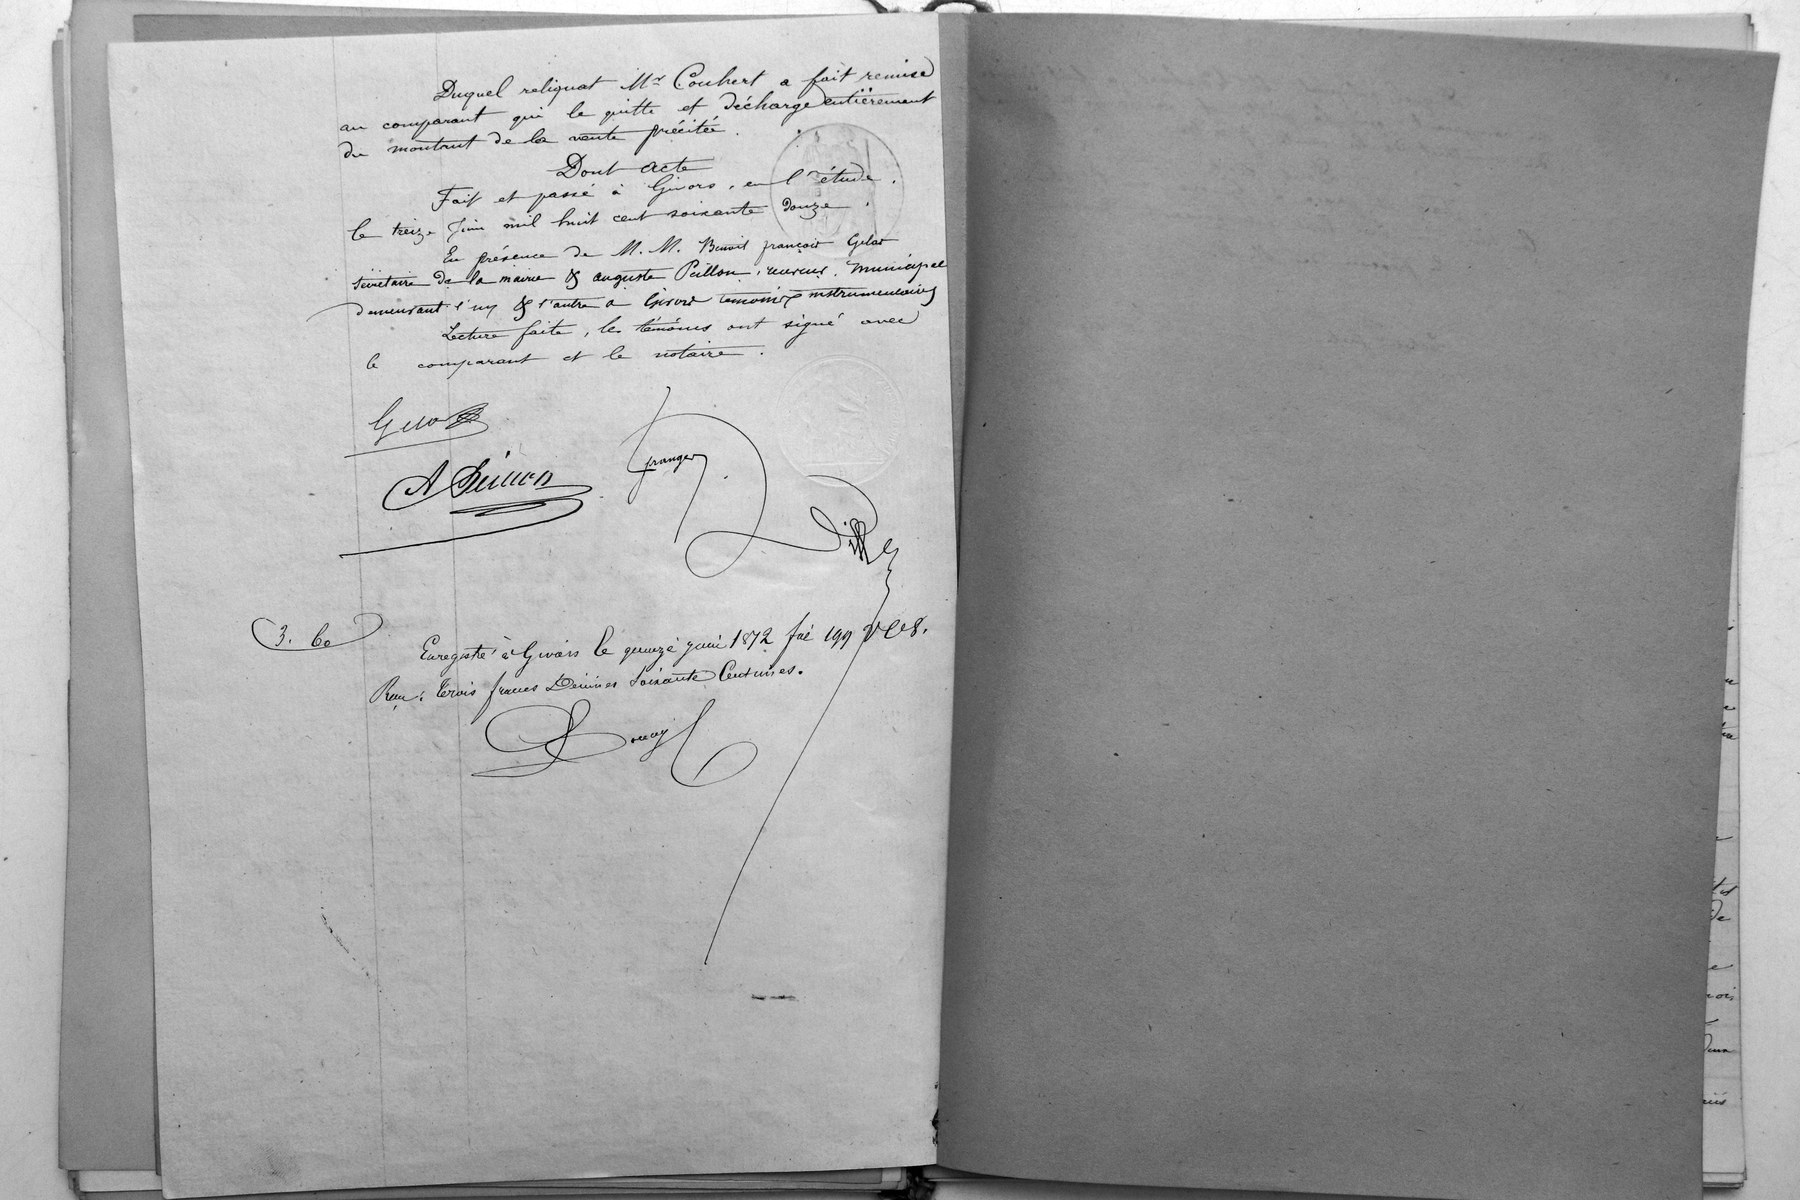 Duquel reliquat Mr Couhert a fait remise
au comparant qui le quitte et décharge entièrement
du montant de la vente précitée.
Dont acte
Fait et passé à Givors, en l'étude,
le treize Juin mil huit cent soixante douze.
En présence de M. M. Benoit françois
secrétaire de la mairie & auguste receveur municipal
demeurant l'un & l'autre à Givors témoins instrumentaires
Lecture faite, les témoins ont signé avec
le comparant et le notaire.
granger
3. 60
Enregistré à Givors le quinze juin 1872 folio 199
Reçu: trois francs Décimes soixante Centimes.